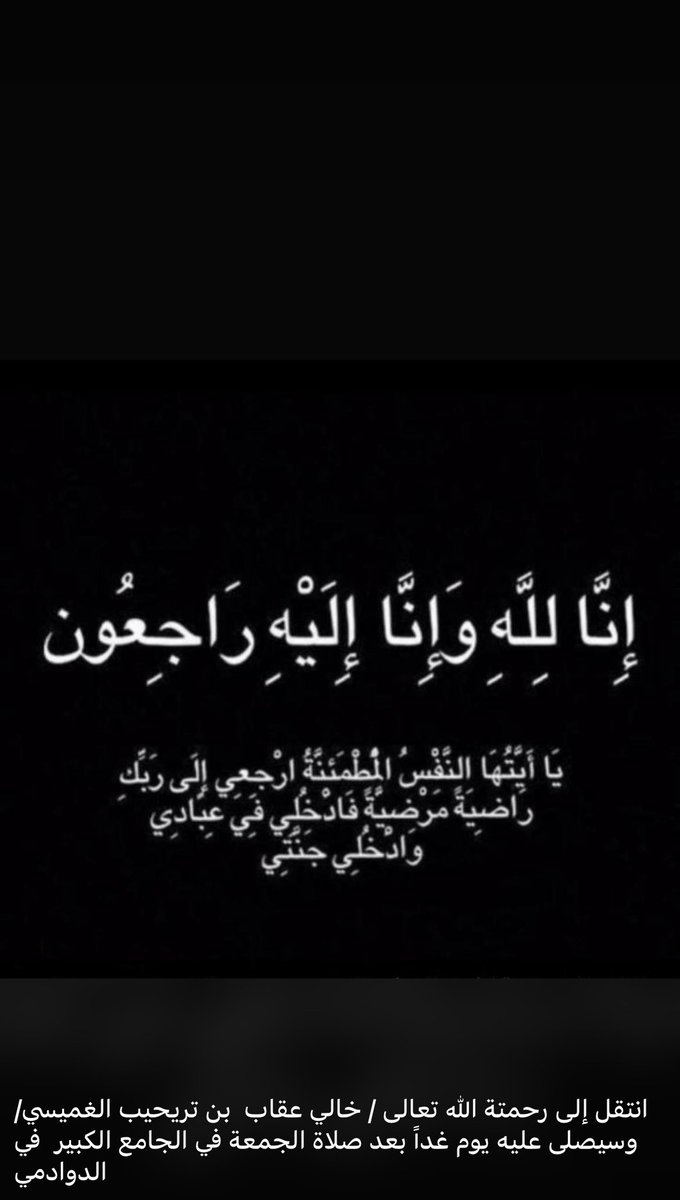 إِنَّا لِلَّهِ وَإِنَّا إِلَيْهِ رَاجِعُون
يَا أَيَّتُهَا النَّفْسُ الْمُطْمَئنَّةُ ارْجعِي إِلَى رَبِّكِ
راضيَةً مَرْضيَّةً فَادْخُلِي فِي عِبَادِي
وَادْخُلِي جَنَّتِي
انتقل إلى رحمتة الله تعالى / خالي عقاب بن تريحيب الغميسي/
وسيصلى عليه يوم غداً بعد صلاة الجمعة في الجامع الكبير في
الدوادمي